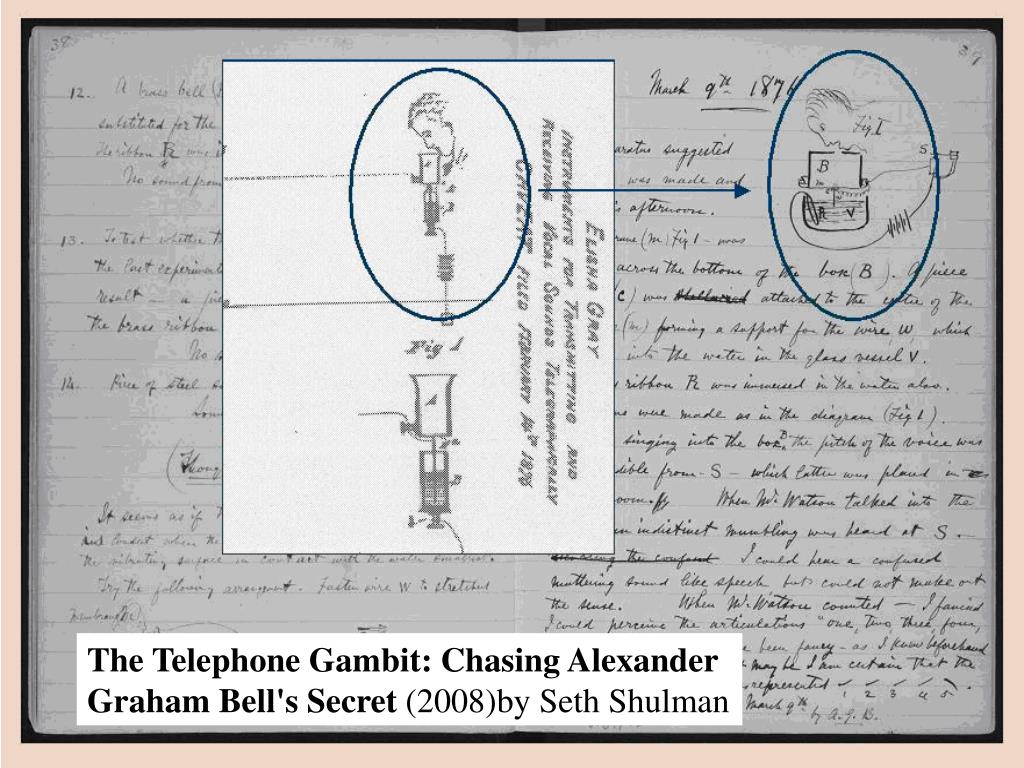 38
39
12. A brass bell (
substituted for the
The ribbon R was i
No sound from
13. To test whether t
the last experiment
result — a pie
the brass ribbon
No s
14. Piece of steel s
Soun
(Thoug
It seems as if
the vibrating surface in contact with the water
Try the following arrangement. Fasten wire W to stretched
membrane
INSTRUMENTS FOR TRANSMITTING AND
RECEIVING VOCAL SOUNDS TELEGRAPHICALLY
CAVEAT FILED FEBRUARY 14th 1876
ELISHA GRAY
Fig 1
March 9th 1876
Fig. 1
B
S
m
R
V
aratus suggested
was made and
s afternoon.
rane (m) Fig 1 - was
across the bottom of the box (B). A piece
(c) was attached to the centre of the
(m) forming a support for the wire W which
into the water in the glass vessel V.
ribbon R was immersed in the water also.
ns were made as in the diagram (Fig 1).
singing into the box B, the pitch of the voice was
dible from S — which latter was placed in
room. When Mr. Watson talked into the
an indistinct mumbling was heard at S. —
I could hear a confused
muttering sound like speech but could not make out
the sense. When Mr. Watson counted — I fancied
I could perceive the articulations "one, two, three, four,
e been fancy - as I knew beforehand
t may be I am certain that the
represented
1 2 3 4 5
March 9th
by A. G. B.
The Telephone Gambit: Chasing Alexander
Graham Bell's Secret (2008)by Seth Shulman